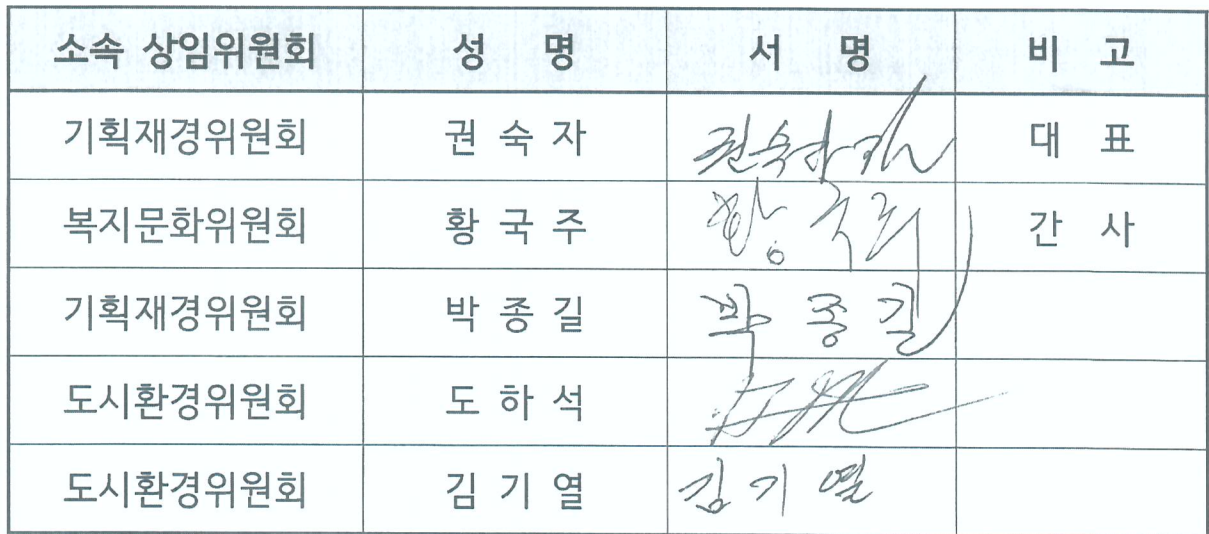 소속 상임위원회 성 명 서 명 비 고
기획재경위원회 권 숙 자 권숙자 대 표
복지문화위원회 황 국 주 황국주 간 사
기획재경위원회 박 종 길 박종길
도시환경위원회 도 하 석
도시환경위원회 김 기 열 김기열